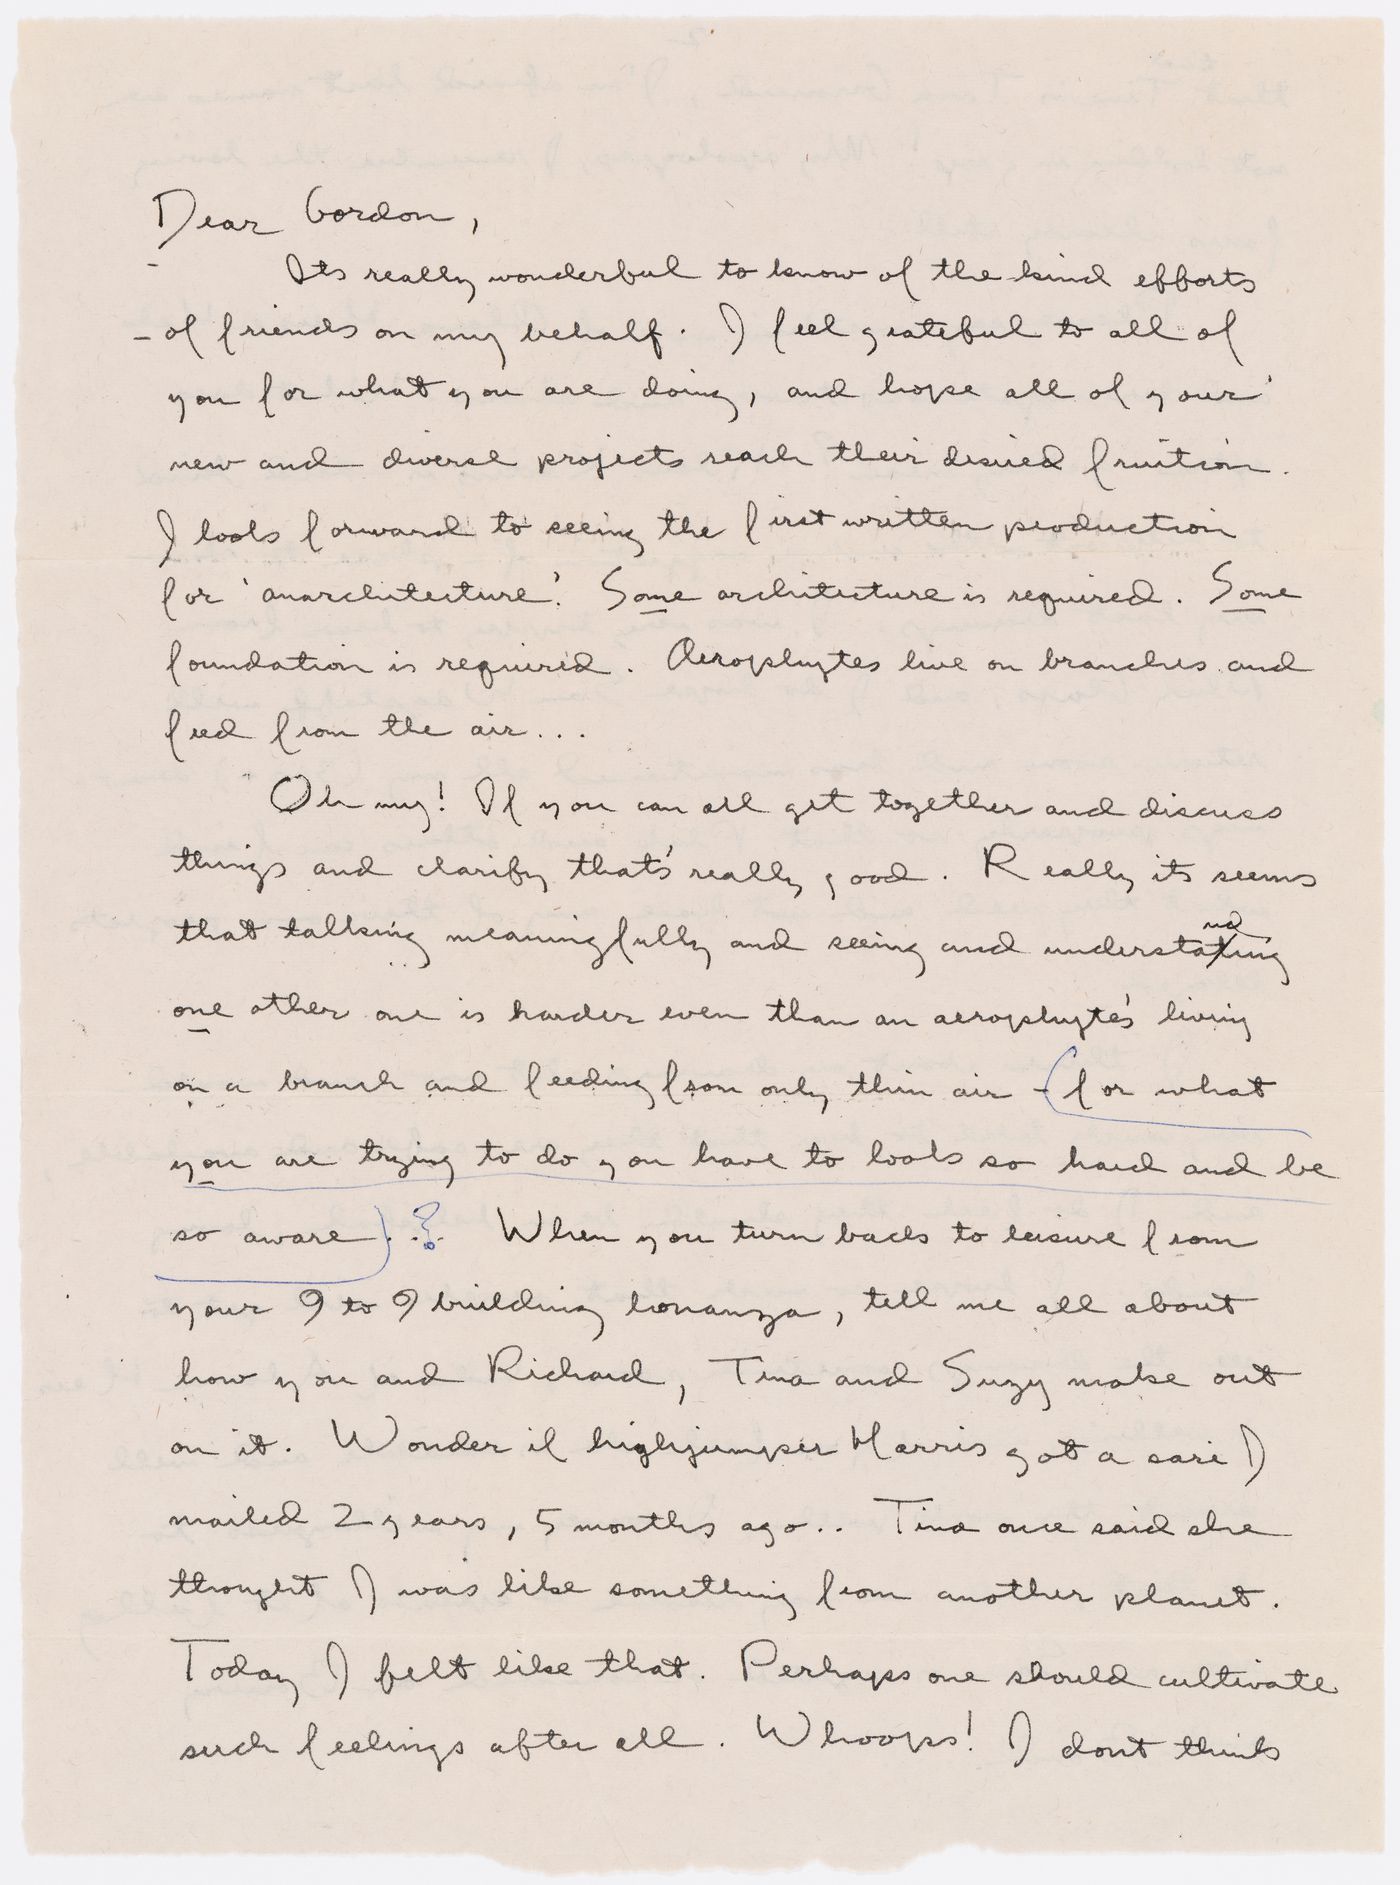 Dear Gordon,
Its really wonderful to know of the kind efforts
of friends on my behalf. I feel grateful to all of
you for what you are doing, and hope all of your
new and diverse projects reach their desired fruition.
I look forward to seeing the first written production
for 'anarchitecture'. Some architecture is required. Some
foundation is required. Aerophytes live on branches and
feed from the air...
Oh my! If you can all get together and discuss
things and clarify that's really good. Really its seems
that talking meaningfully and seeing and understanding
one other one is harder even than an aerophyte's living
on a branch and feeding from only thin air - (for what
you are trying to do you have to look so hard and be
so aware). ? When you turn back to leisure from
your 9 to 9 building bonanza, tell me all about
how you and Richard, Tina and Suzy make out
on it. Wonder if highjumper Harris got a sari I
mailed 2 years, 5 months ago.. Tina once said she
thought I was like something from another planet.
Today I felt like that. Perhaps one should cultivate
such feelings after all. Whoops! I dont think